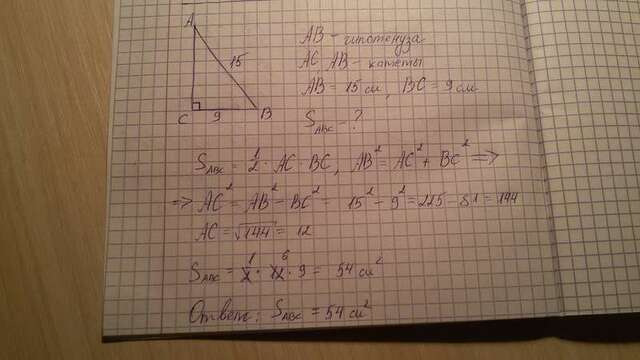 A
15
C 9 B
AB - гипотенуза
AC AB - катеты
AB = 15 см, BC = 9 см
S_ABC - ?
S_ABC = 1/2 · AC · BC, AB² = AC² + BC² =>
=> AC² = AB² = BC² = 15² - 9² = 225 - 81 = 144
AC = √144 = 12
S_ABC = 1/2 · 12 6 · 9 = 54 см²
Ответ: S_ABC = 54 см²